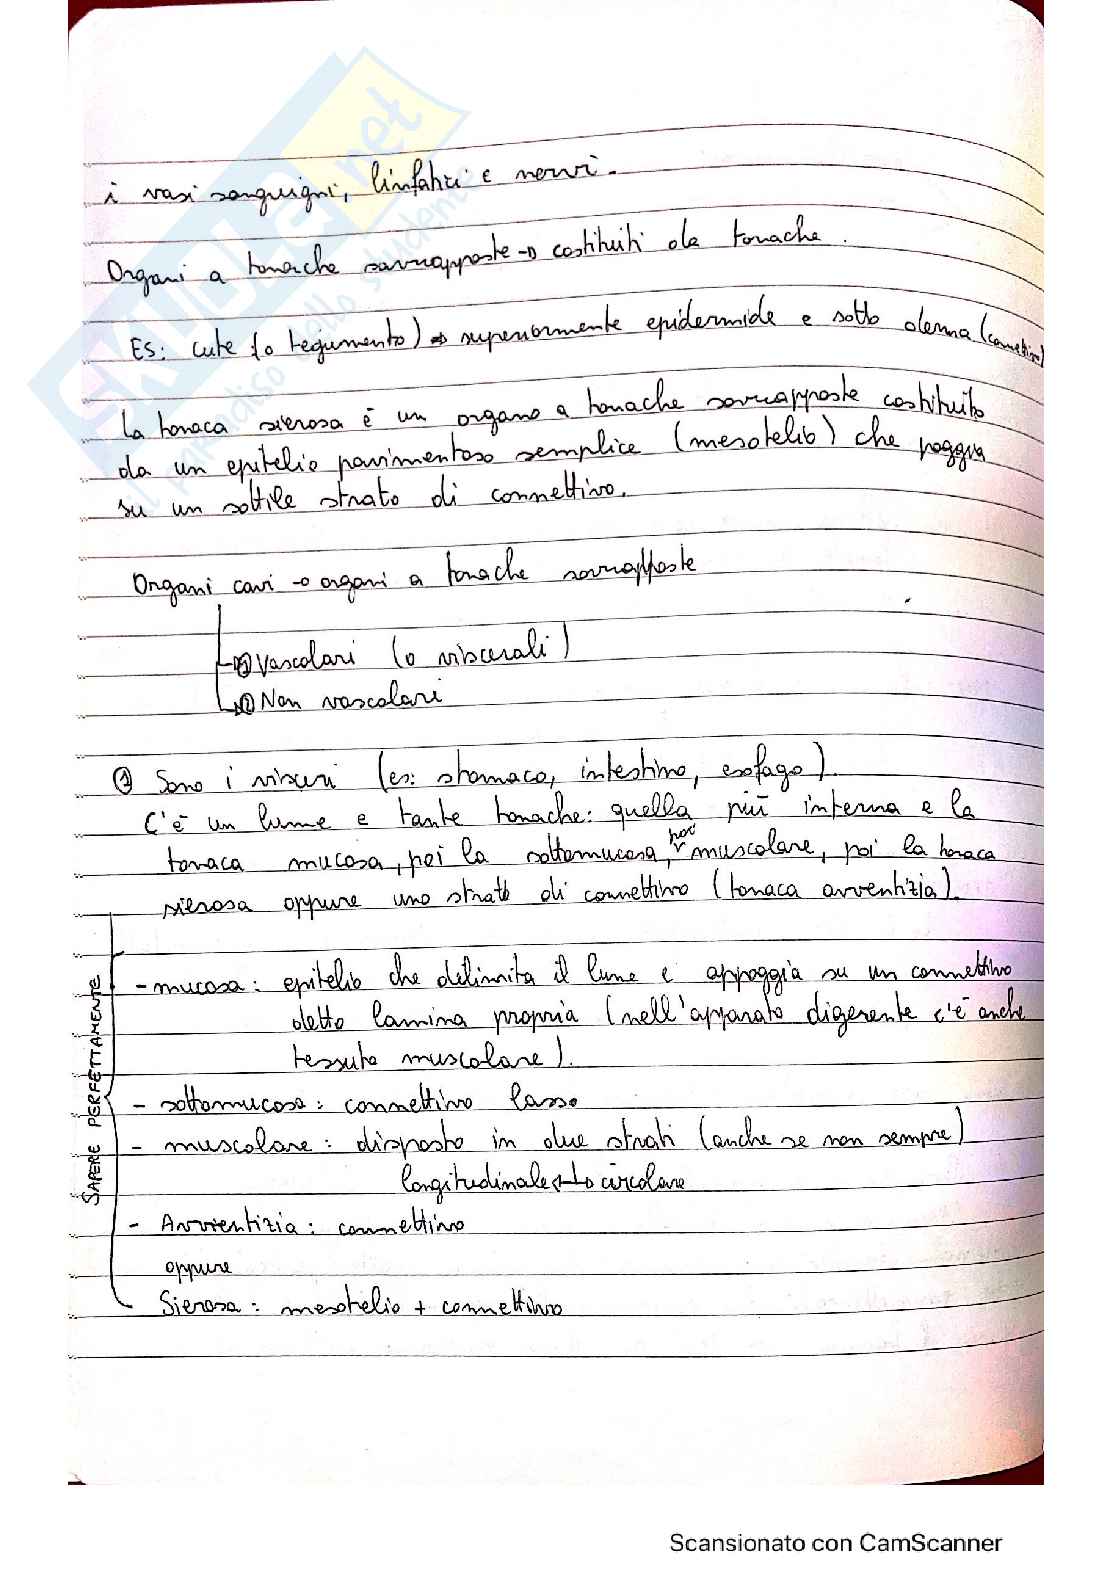 i vasi sanguigni, linfatici e nervi.
Organi a tonache sovrapposte → costituiti da tonache.
ES: cute (o tegumento) → superiormente epidermide e sotto derma (connettivo)
La tonaca sierosa è un organo a tonache sovrapposte costituito
da un epitelio pavimentoso semplice (mesotelio) che poggia
su un sottile strato di connettivo.
Organi cavi → organi a tonache sovrapposte
① Vascolari (o viscerali)
② Non vascolari
① Sono i visceri (es: stomaco, intestino, esofago).
C'è un lume e tante tonache: quella più interna e la
tonaca mucosa, poi la sottomucosa, poi muscolare, poi la tonaca
sierosa oppure uno strato di connettivo (tonaca avventizia).
SAPERE PERFETTAMENTE
- mucosa: epitelio che delimita il lume e appoggia su un connettivo
detto lamina propria (nell'apparato digerente c'è anche
tessuto muscolare).
- sottomucosa: connettivo lasso
- muscolare: disposto in due strati (anche se non sempre)
longitudinale ↔ circolare
- Avventizia: connettivo
oppure
Sierosa: mesotelio + connettivo
SKUOLA.net
il paradiso dello studente
Scansionato con CamScanner